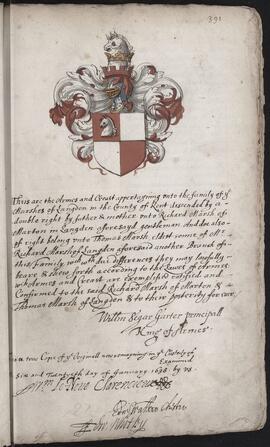 391
This are the Armes and Creast appertayning unto the family of ye
Marshes of Langden in the County of Kent descended by a
double right by father & mother unto Richard Marsh of
Marton in Langden aforesayd gentleman And doe alsoe
of right belong unto Thomas Marsh eldest sonne of Mr
Richard Marsh of Langden aforesaid another Branch of
this Family, with due differences they may lawfully
beare & shew forth according to the Lawes of Armes
wch Armes and Creast are exemplified ratified and
Confirmed to the said Richard Marsh of Marton &
Thomas Marsh of Langden & to their posterity for ever,
Willm Segar Garter principall
King of Armes
a true Copy of ye Originall now remayning in ye Custody of
Examined
Six and Twentyeth day of January 1638 by us
Wm Le Neve Clarenceux